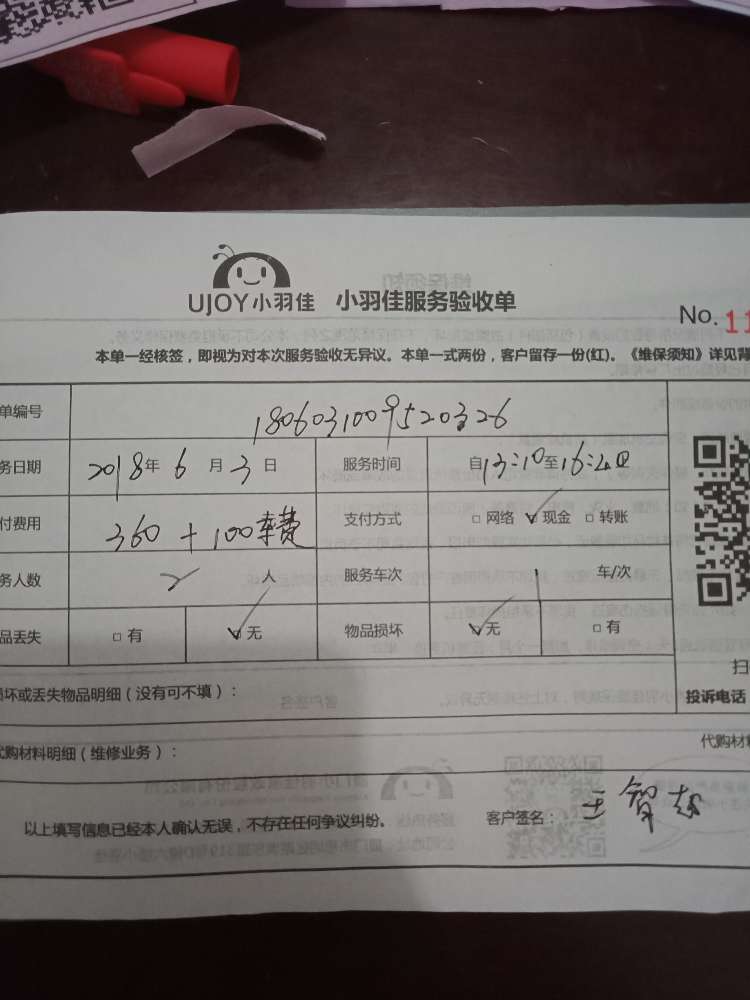 UJOY小羽佳 小羽佳服务验收单
No. 11
本单一经核签，即视为对本次服务验收无异议。本单一式两份，客户留存一份(红)。《维保须知》详见背
单编号 180603100952032-6
务日期 2018年 6月 3日 服务时间 自13:10至16:40
付费用 360 + 100车费 支付方式 □ 网络 ☑ 现金 □ 转账
务人数 2 人 服务车次 1 车/次
品丢失 □ 有 ☑ 无 物品损坏 ☑ 无 □ 有
扫
损坏或丢失物品明细（没有可不填）：
投诉电话
代购材料明细（维修业务）：
代购材料
以上填写信息已经本人确认无误，不存在任何争议纠纷。 客户签名：王智超